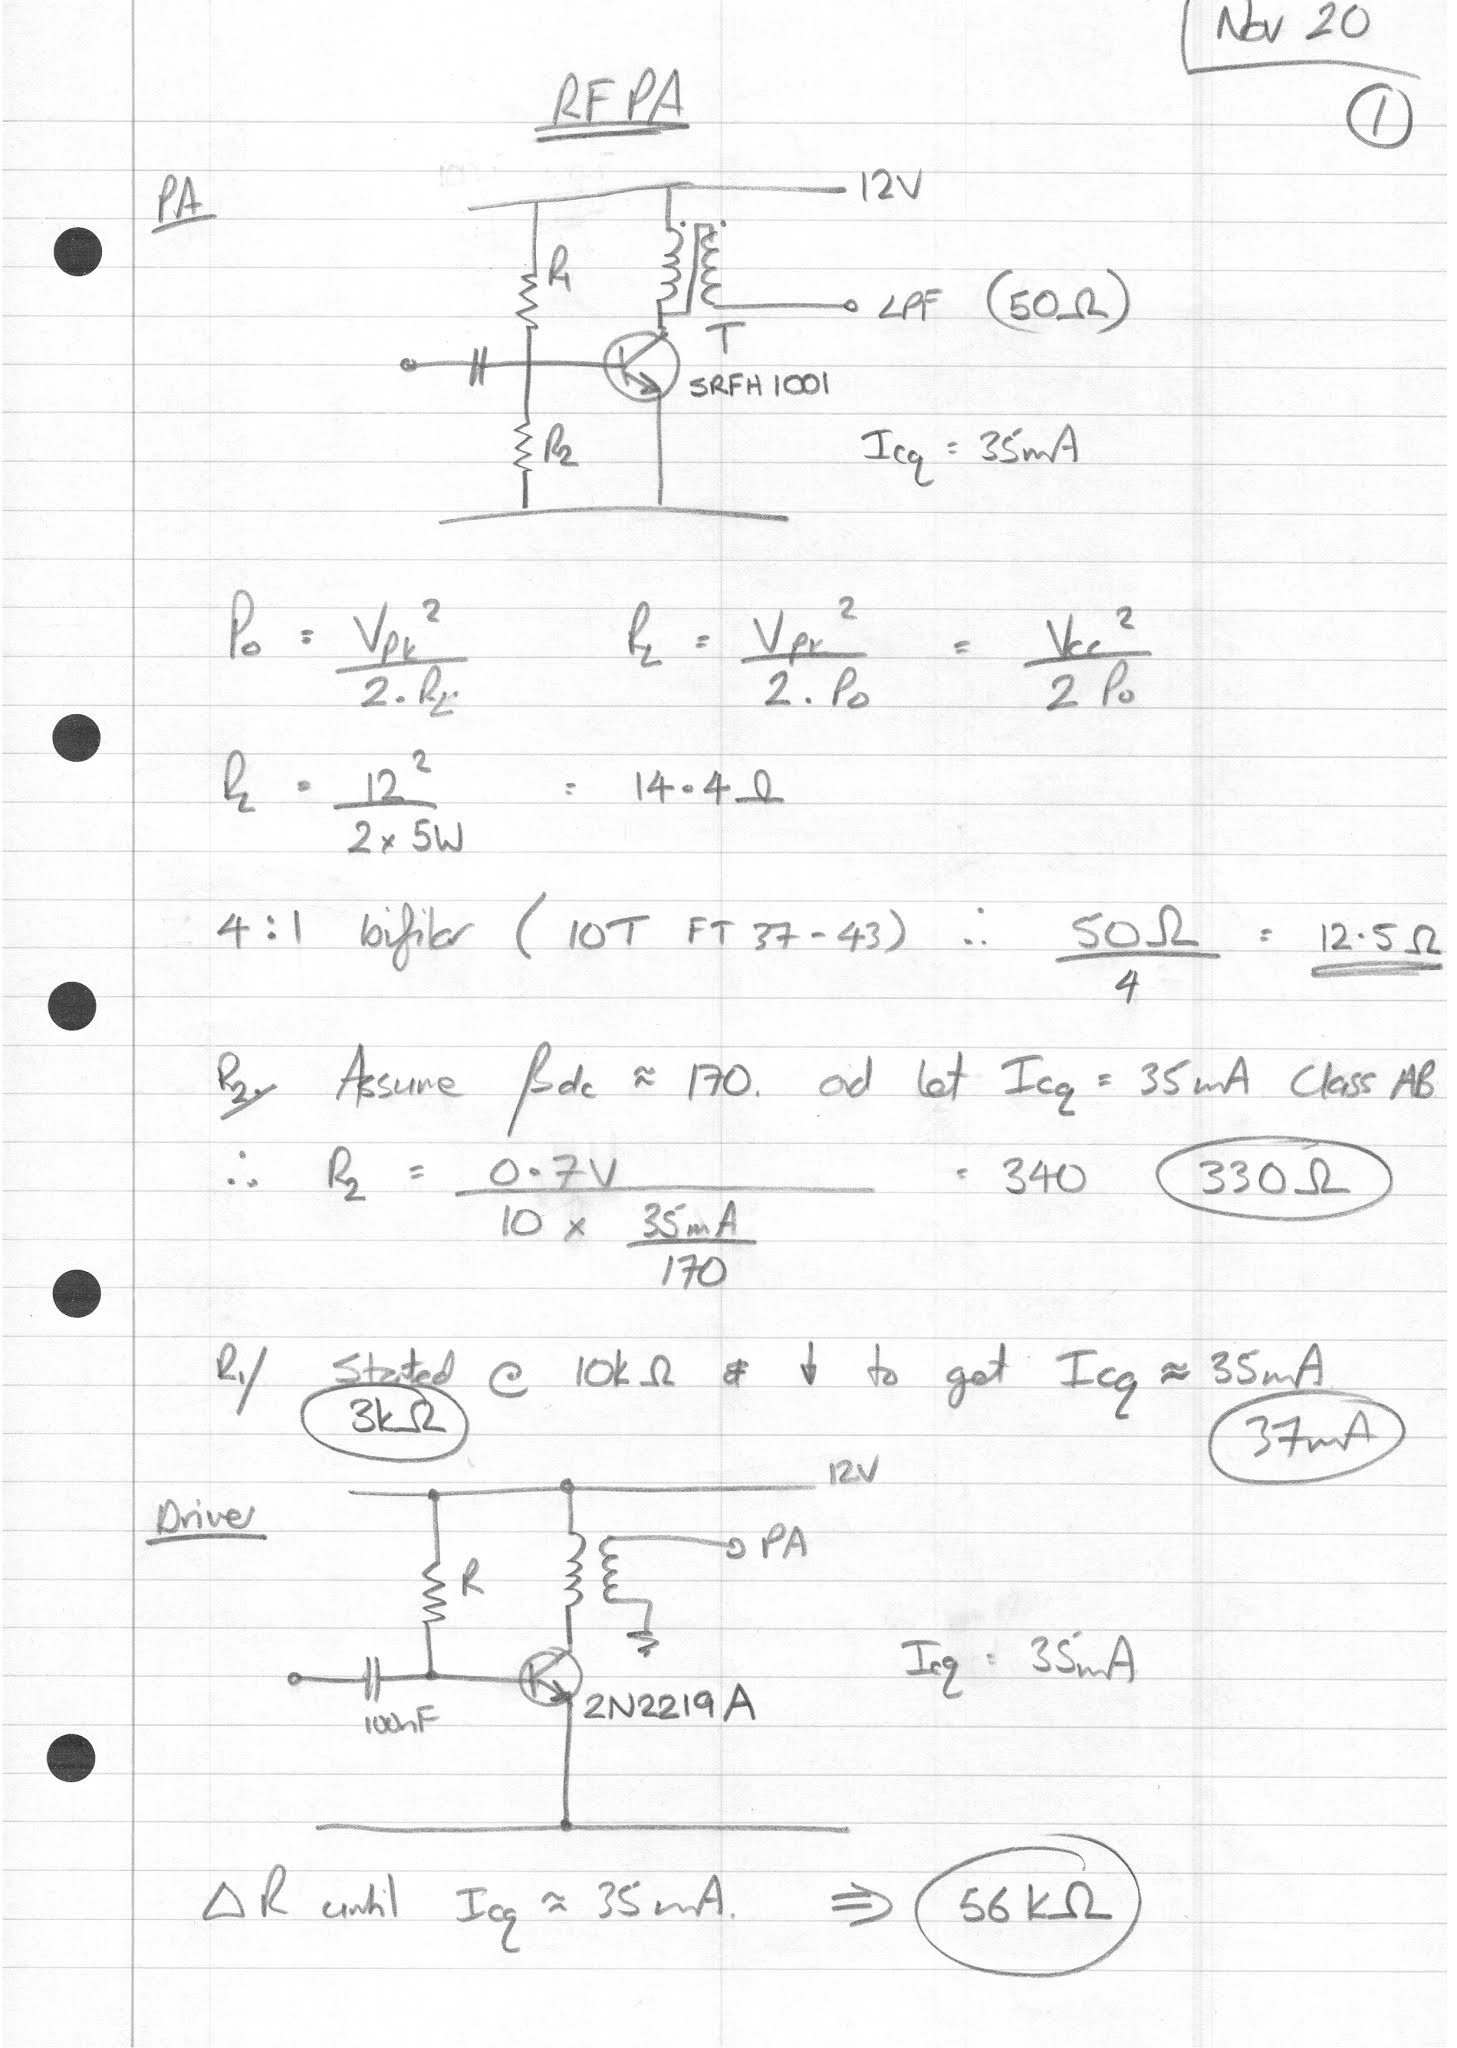 Nov 20
1
RF PA
PA
12V
R1
LPF (50Ω)
T
SRFH1001
R2
Icq = 35mA
Po = Vpk² / 2.RL    RL = Vpk² / 2.Po = Vcc² / 2 Po
RL = 12² / 2 x 5W = 14.4Ω
4:1 bifilar (10T FT 37-43) ∴ 50Ω / 4 = 12.5Ω
R2/ Assume βdc ≈ 170. ad let Icq = 35mA Class AB
∴ R2 = 0.7V / 10 x 35mA / 170 = 340 330Ω
R1/ Started @ 10kΩ & ↓ to get Icq ≈ 35mA
3kΩ
37mA
12V
Driver
PA
R
Icq = 35mA
2N2219A
100nF
ΔR until Icq ≈ 35mA. ⇒ 56kΩ